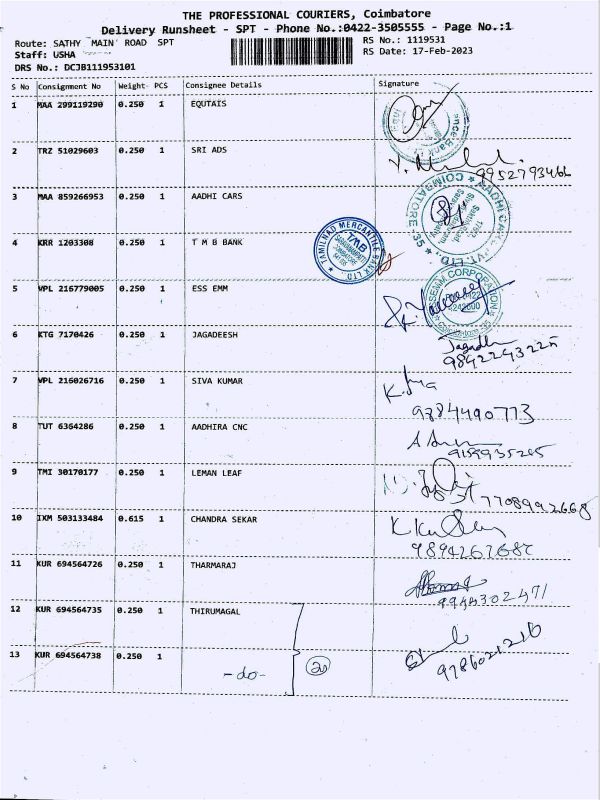 THE PROFESSIONAL COURIERS, Coimbatore
Delivery Runsheet - SPT - Phone No.:0422-3505555 - Page No.:1
Route: SATHY MAIN ROAD SPT RS No.: 1119531
Staff: USHA RS Date: 17-Feb-2023
DRS No.: DCJB111953101
S No Consignment No Weight PCS Consignee Details Signature
1 MAA 299119290 0.250 1 EQUTAIS
2 TRZ 51029603 0.250 1 SRI ADS
9952793466
3 MAA 859266953 0.250 1 AADHI CARS
AADHI CARS PVT. LTD. COIMBATORE-35
4 KRR 1203308 0.250 1 T M B BANK
TAMILNAD MERCANTILE BANK LTD.
TMB
5 VPL 216779005 0.250 1 ESS EMM
ESSEMM CORPORATION
Coimbatore-35
6 KTG 7170426 0.250 1 JAGADEESH
9842243225
7 VPL 216026716 0.250 1 SIVA KUMAR
9784490773
8 TUT 6364286 0.250 1 AADHIRA CNC
9 TMI 30170177 0.250 1 LEMAN LEAF
7708992668
10 IXM 503133484 0.615 1 CHANDRA SEKAR
11 KUR 694564726 0.250 1 THARMARAJ
9944302471
12 KUR 694564735 0.250 1 THIRUMAGAL
13 KUR 694564738 0.250 1 -do-
9786021216